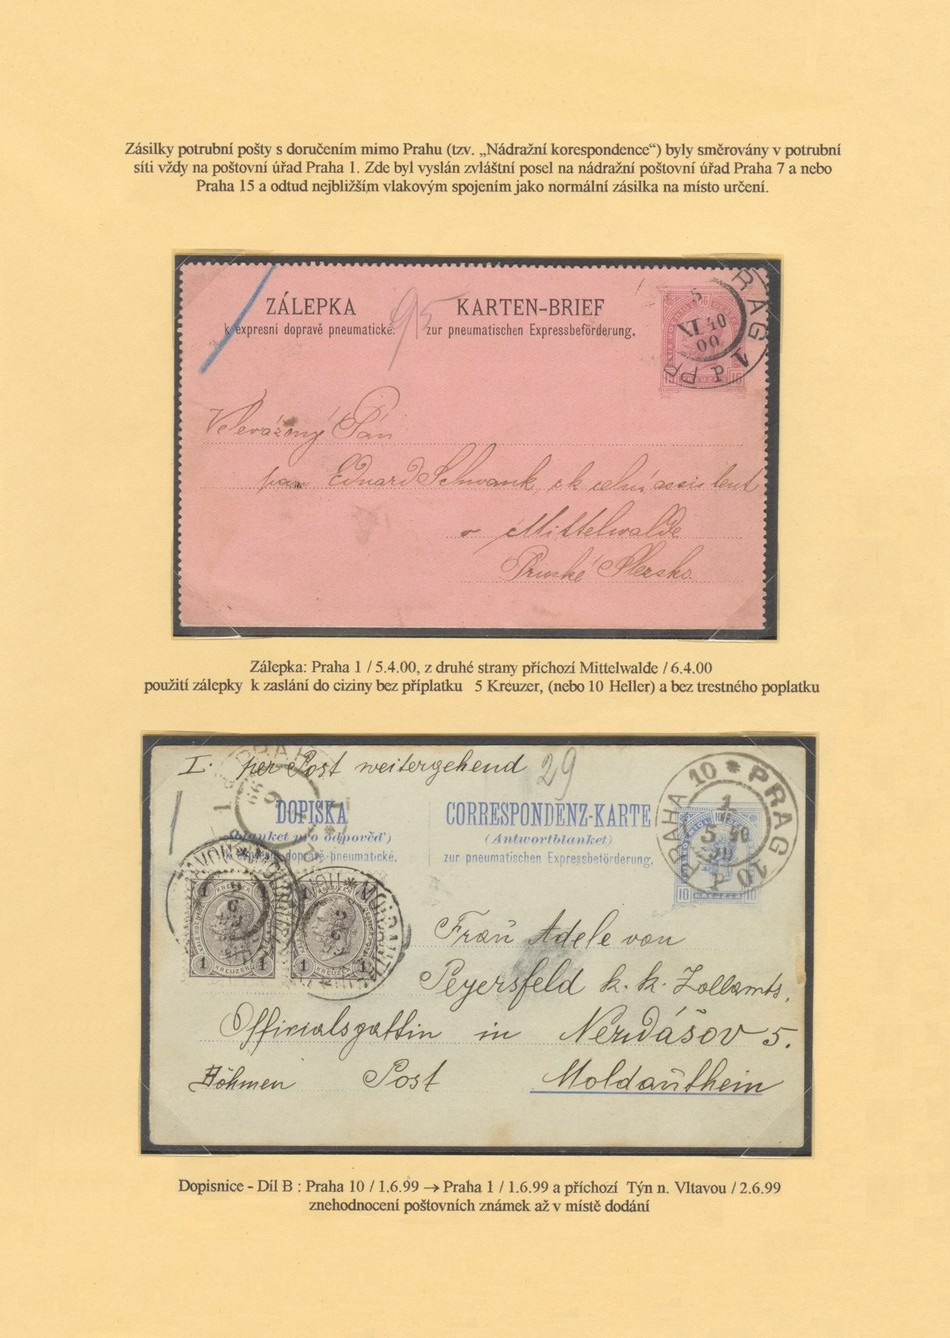 Zásilky potrubní pošty s doručením mimo Prahu (tzv. „Nádražní korespondence“) byly směrovány v potrubní
síti vždy na poštovní úřad Praha 1. Zde byl vyslán zvláštní posel na nádražní poštovní úřad Praha 7 a nebo
Praha 15 a odtud nejbližším vlakovým spojením jako normální zásilka na místo určení.
ZÁLEPKA
k expresní dopravě pneumatické.
95
KARTEN-BRIEF
zur pneumatischen Expressbeförderung.
PRAG 1 P
5
XI 40
00
Velevážený Pán
pan Eduard Schwank, c.k. celní assistent
v Mittelwalde
Pruské Slezsko.
Zálepka: Praha 1 / 5.4.00, z druhé strany příchozí Mittelwalde / 6.4.00
použití zálepky k zaslání do ciziny bez příplatku 5 Kreuzer, (nebo 10 Heller) a bez trestného poplatku
I. per Post weitergehend
29
DOPISKA
(blanket pro odpověď)
k expresní dopravě pneumatické.
CORRESPONDENZ-KARTE
(Antwortblanket)
zur pneumatischen Expressbeförderung.
PRAHA 10 * PRAG 10 P
1
5 40
10 10
1 KREUZER 1
1 KREUZER 1
Frau Adele von
Peyersfeld k. k. Zollamts,
Officialsgattin in Nerdášov 5.
Böhmen Post Moldauthein
Dopisnice - Díl B : Praha 10 / 1.6.99 → Praha 1 / 1.6.99 a příchozí Týn n. Vltavou / 2.6.99
znehodnocení poštovních známek až v místě dodání